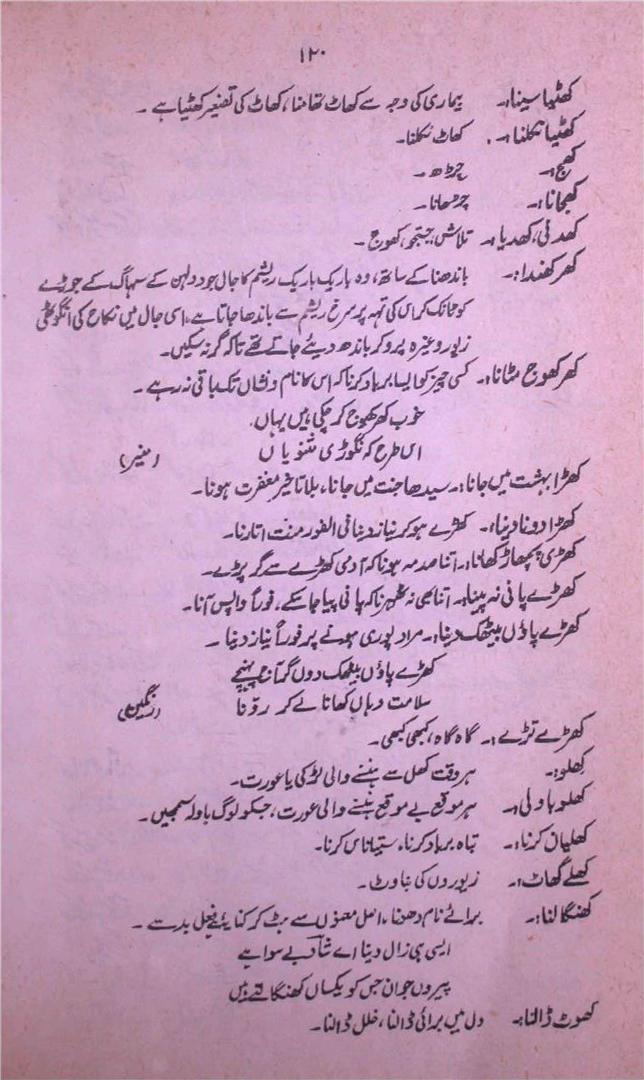 ۱۲۰
کھٹیا سینا:۔ بیماری کی وجہ سے کھاٹ تھامنا، کھاٹ کی تصغیر کھٹیا ہے۔
کھٹیا نکلنا:۔ کھاٹ نکلنا۔
کھج:۔ چڑھ۔
کھجانا:۔ چڑھانا۔
کھدئی، کھدیا:۔ تلاش، جستجو، کھوج۔
کھر کھندا:۔ باندھنا کے ساتھ، وہ باریک باریک ریشم کا جال جو دولہن کے سہاگ کے جوڑے
کو ٹانک کر اس کی تہہ پر سرخ ریشم سے باندھا جاتا ہے، اسی جال میں نکاح کی انگوٹھی
زیور وغیرہ پرو کر باندھ دیئے جاتے تھے تاکہ گر نہ سکیں۔
کھر کھوج مٹانا:۔ کسی چیز کو ایسا برباد کرنا کہ اس کا نام و نشاں تک باقی نہ رہے۔
خوب کھر کھوج کر چکی ہیں یہاں
اس طرح کو نگوڑی شنویاں (منیر)
کھڑا بہشت میں جانا:۔ سیدھا جنت میں جانا، بلا تاخیر مغفرت ہونا۔
کھڑا دونا دینا:۔ کھڑے ہو کر نیاز دینا فی الفور منت اتارنا۔
کھڑی پچھاڑ کھانا:۔ اتنا صدمہ ہونا کہ آدمی کھڑے سے گر پڑے۔
کھڑے پانی نہ پینا:۔ اتنا بھی نہ ٹھہرنا کہ پانی پیا جا سکے، فوراً واپس آنا۔
کھڑے پاؤں بیٹھک دینا:۔ مراد پوری ہونے پر فوراً نیاز دینا۔
کھڑے پاؤں بیٹھک دوں گر آج پہنچے
سلامت وہاں کھانا لے کر روّنا (رنگین)
کھڑے تڑے:۔ گاہ گاہ، کبھی کبھی۔
کھلو:۔ ہر وقت کھل سے ہنسنے والی لڑکی یا عورت۔
کھلو باولی:۔ ہر موقع بے موقع ہنسنے والی عورت، جسکو لوگ باولہ سمجھیں۔
کھلیان کرنا:۔ تباہ برباد کرنا، ستیاناس کرنا۔
کھلے گھاٹ:۔ زیوروں کی بناوٹ۔
کھنگالنا:۔ برائے نام دھونا، اصل معنوں سے ہٹ کر کنایۃً فعل بد سے۔
ایسی ہی زال دینا اے شاد بے سوا ہے
پیروں جوان جس کو یکساں کھنگالتے ہیں
کھوٹ ڈالنا:۔ دل میں برائی ڈالنا، خلل ڈالنا۔